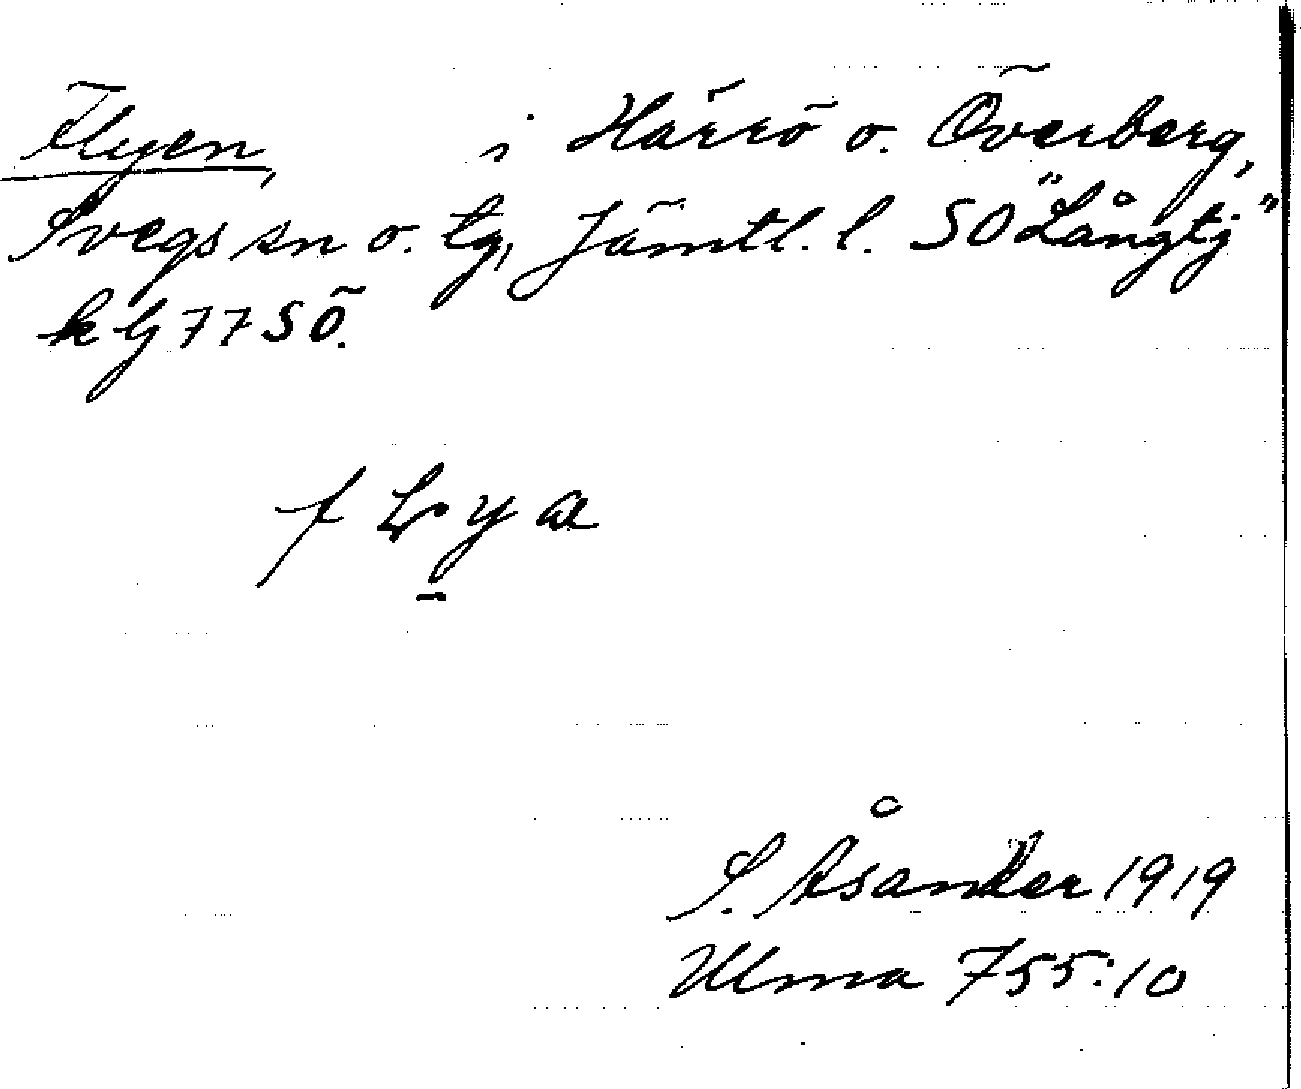 Flyen, i Härrö o. Överberg,
Svegs sn o. tg, Jämtl. l. SO "Långtj"
k bj 77 SÖ.
f L y a
S. Åsander 1919
Ulma 755:10